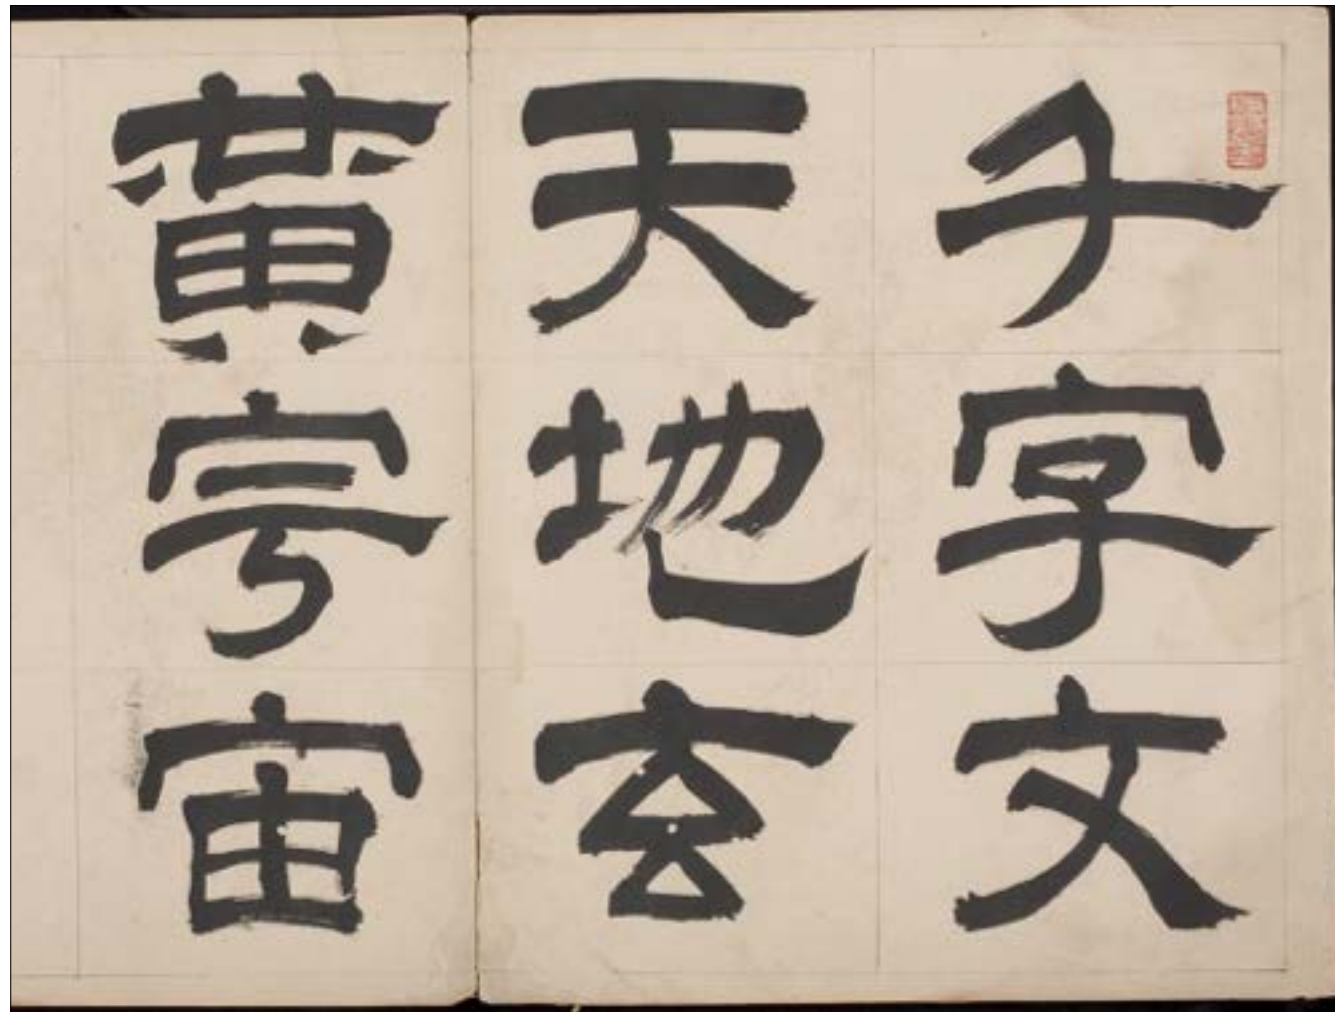 千字文
天地玄
黃宇宙